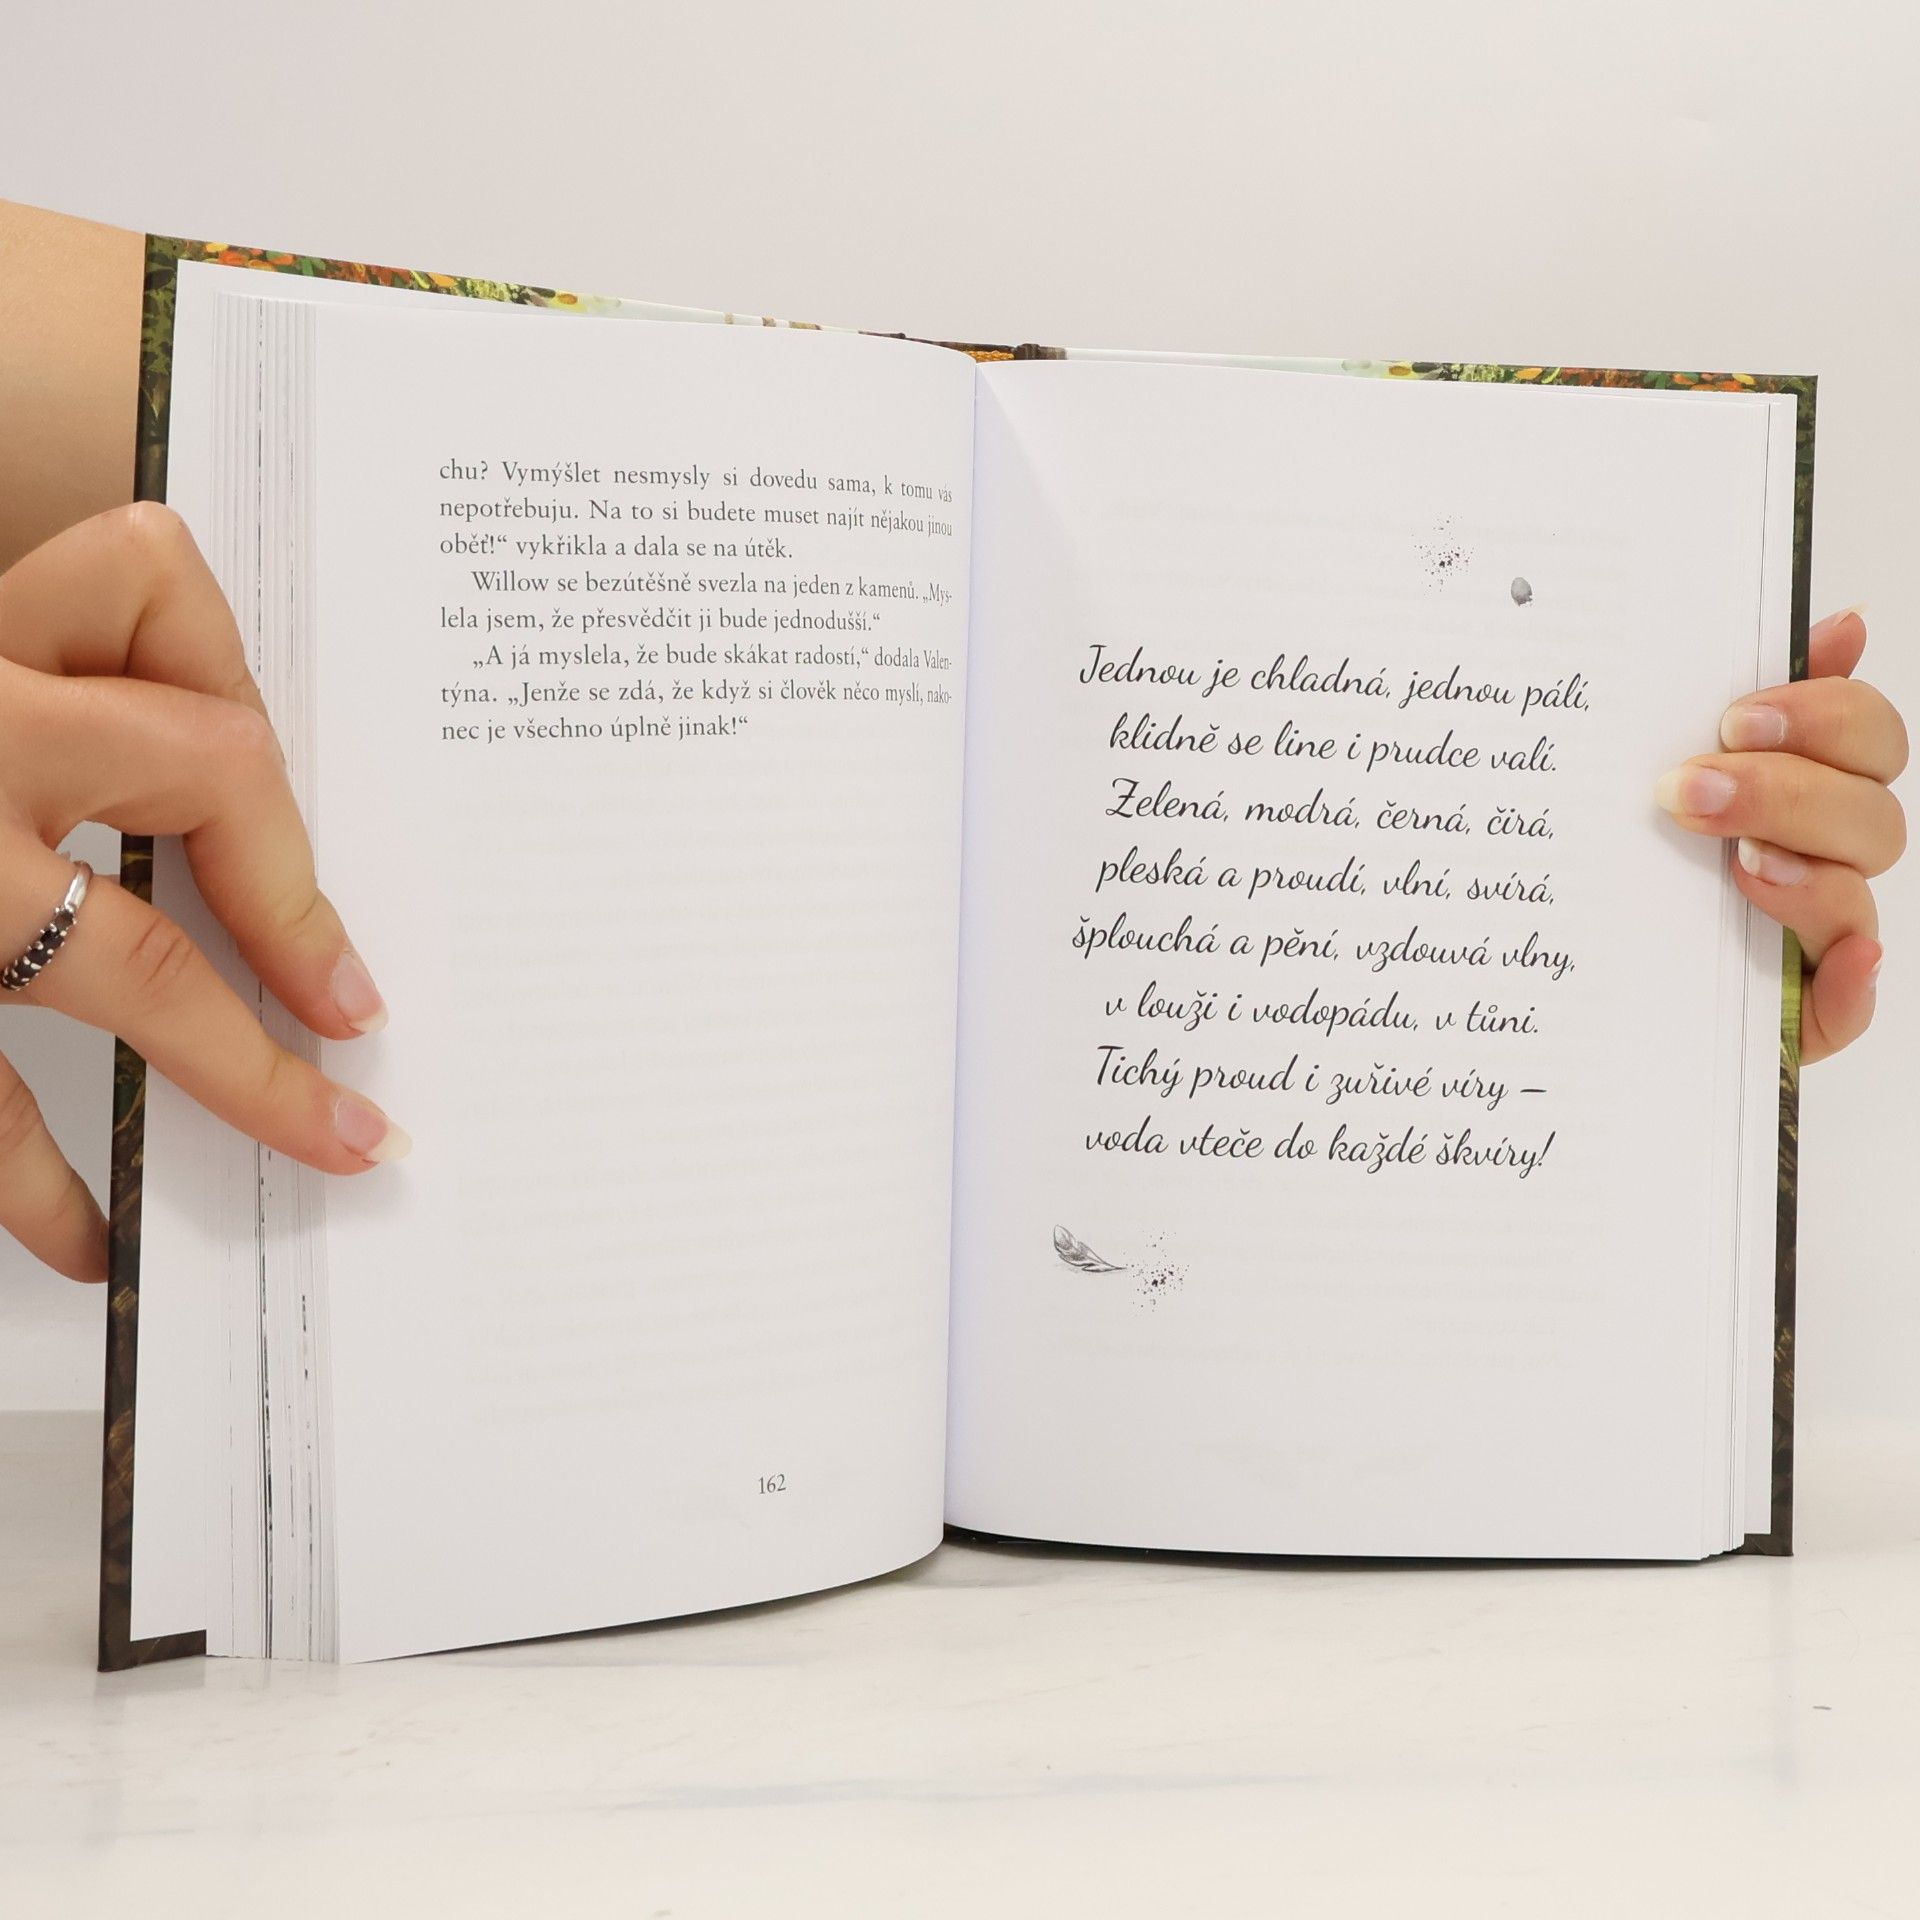 chu? Vymýšlet nesmysly si dovedu sama, k tomu vás
nepotřebuju. Na to si budete muset najít nějakou jinou
oběť!“ vykřikla a dala se na útěk.
Willow se bezútěšně svezla na jeden z kamenů. „Mys-
lela jsem, že přesvědčit ji bude jednodušší.“
„A já myslela, že bude skákat radostí,“ dodala Valen-
týna. „Jenže se zdá, že když si člověk něco myslí, nako-
nec je všechno úplně jinak!“
162
Jednou je chladná, jednou pálí,
klidně se line i prudce valí.
Zelená, modrá, černá, čirá,
pleská a proudí, vlní, svírá,
šplouchá a pění, vzdouvá vlny,
v louži i vodopádu, v tůni.
Tichý proud i zuřivé víry –
voda vteče do každé škvíry!